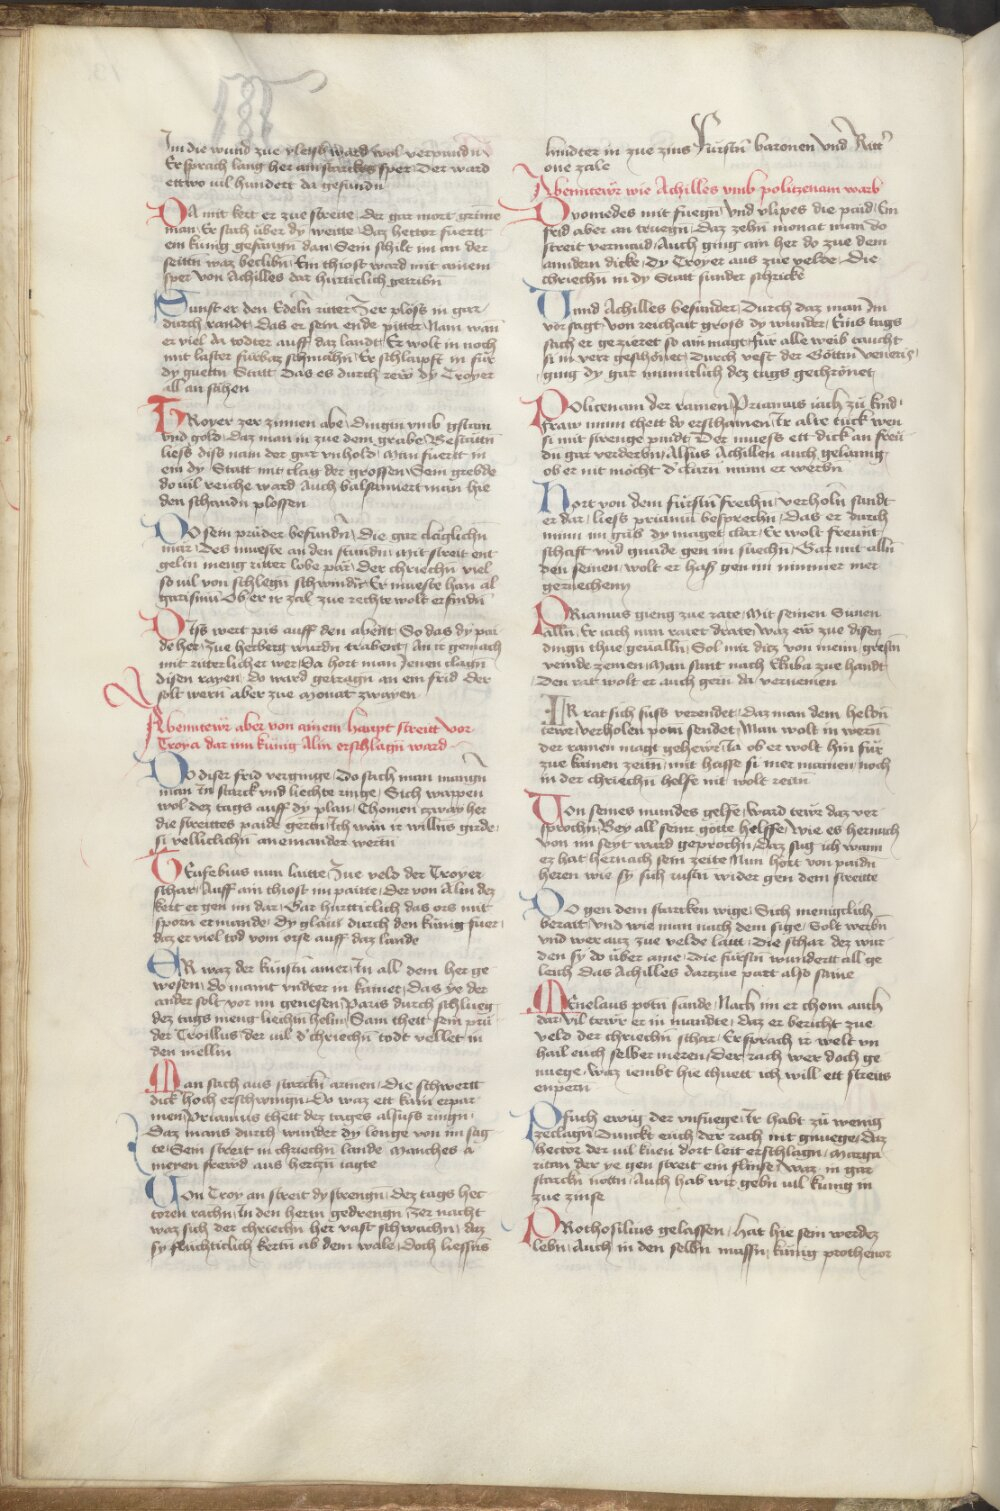 Im die wund zue vleyß ward wol verpundn
Er sprach lang her ain starkes sper Der ward
ettwo vil hundert da gefundn
DA mit kert er zue streite Der gar mort grime
man Er sach über dy weitte Daz hector fuertt
ein kunig gefangn dan Sein schilt im an der
seittn waz beclibn Ein thiost ward mit ainem
sper von Achilles dar hurticlich getribn
Sunst er den Edeln ritter Zer plöss in gar
durch randt Das er sein ende pitter Nam wan
er viel da todter auff daz landt Er wolt in noch
mit laster fürbaz schmahn Er schlaipft in für
dy guettn Statt Das es durch rew dy Troyer
all an sahen
TRoyer zer zinnen abe Dingtn vmb gstain
vnd gold daz man in zue dem grabe Bestattn
liess diss nam der gar vnhold Man fuertt in
ein dy Statt mit clag der grossen Sein grebde
do vil reiche ward Auch balsamiert man hie
den schandn plossen
DO sein prüder befundn Die gar claglichn
mär Des mueste an den stundn mit streit ent
geltn meng ritter lobe pär Der chriechn viel
so vil von schlegn schwindn Er mueste han al
garisimu Ob er ir zal zue rechte wolt erfindn
DIss wert pis auff den abent So das dy pai
de her Zue herberg wurdn trabent An ir gemach
mit ritterlicher wer Da hort man Jenen clagn
disen rayen do ward getragn an ein frid der
solt wern aber zue Monat zwayen
Abenntewr aber von ainem haupt streitt vor
Troya dar inn kunig Alin erschlagn ward
DO diser frid verginge Do sach man mangn
man In starck vnd liechte ringe Sich wappen
wol dez tags auff dy plan Chomen zwar her
die streittes paide gertn Ich wän ir willns girde
si velliclichn aneinander wertn
TEusebius nun laitte Zue veld der Troyer
schar Auff ain thiost im paitte Der von Alin dez
kert er gen im dar Gar hurtticlich das ors mit
sporn ermande Dy glaüi durch den künig fuer
daz er viel tod vom orse auff daz lande
ER waz der künstn ainer In all dem her ge
wesen Do maint vndter in kainer Das ye der
ander solt vor im genesen Paris durch schlueg
dez tags meng liechtn helm Sam thett sein prü
der Troillus der vil d chriechn todt vellet in
den mellm
MAn sach aus starckn armen Die schwertt
dick hoch erschwingn Do waz ett kain erpar
men Priamus thett der tages alsuss ringn
Daz mans durch wunder dy lenge von im sag
te Sein streit in chriechn lande Manches a
meyen frewd aus hertzn iagte
VOn Troy an streit dy strengn Dez tags hec
toren rachn In den herttn gedrengn Zer nacht
waz sich der chriechn her vast schwachn Daz
sy fluchticlich kertn ab dem wale Doch liessns
hindter in zue zins Fürstn baronen vnd Ritt
one zale
Abenntewr wie Achilles vmb politzenam warb
Dyomedes mit fuegn Vnd vlixes die paid Ein
frid aber an truegn Daz zehn monat man do
streit vermaid Auch ging ain her do zue dem
anndern dicke Dy Troyer aus zue velde Die
chriechn in dy Statt sunder schricke
Und Achilles besunder Durch daz man Im
vor sagt Von reichait gross dy wunder Eins tags
sach er gezieret so ain magt für alle weib taucht
si in verr geschönet Durch vest der Göttin veneris
ging dy gar minniclich dez tags gechrönet
POlicenam der ramen Priamus iach zü kind
fraw minn thett do erschamen Ir alte tück wen
si mit strenge pindt Der muess ett dick an freu
du gar verderbn Alsus Achillen auch gelanng
ob er nit möcht d clarn minn er werbn
HOrt von dem fürstn frechn verholn sandt
er dar liess priamu besprechn Das er durch
minn im gäb dy maget clar Er wolt freunt
schaft vnd gnade gen im suechn Gar mit alln
den seinen wolt er haß gen im nimmer mer
geruechenn
PRiamus gieng zue rate Mit seinen Sunen
alln Er iach nun ratet drate Waz ew zue disen
dingn thue geualln Sol mir ditz von meinn grestn
veinde zemen Man sant nach Ekuba zue handt
Den rat wolt er auch gern da vernemen
IR rat sich suss verendet Daz man dem heldn
tewr verholen potn sendet Man wolt in wern
der ramen magt gehewr Ja ob er wolt hin für
zue kainen zeitn mit hasse si mer mainen noch
in der chriechn helfe nit wolt reitn
VOn seines mundes gelfe Ward tewr daz ver
sprochn Bey all seinr götte helffe Wie es hernach
von im seyt ward geprochn Daz sag ich wann
ez hat hernach sein zeite Nun hört von paidn
heren wie sy sich rustn wider gen dem streitte
DO gen dem starcken wige Sich menigclich
berait Vnd wie man nach dem sige Solt werbn
vnd wer auz zue velde laitt Die schar dez wur
den sy do über aine Die fürstn wundertt all ge
leich Das Achilles dartzue part also staine
MEnelaus potn sande Nach im er chom auch
dar Vil tewr er in mandte Daz er bericht zue
veld der chriechn schar Er sprach ir welt vn
hail euch selber meren Der rach wer doch ge
nuege Waz iembt hie thuett ich will ett streits
enpern
PFuch ewig der vnfuege Ir habt zü wenig
zeclagn Dunckt euch der rach mit gnuege Daz
hector der vil küen dort leit erschlagn Marga
ritan der ye gen streit ein flinse Waz in gar
starckn nöttn Auch hab wir gebn vil kunig in
zue zinse
PRothosilius gelassen Hat hie sein werdez
lebn Auch in den selbn massn kunig prothenor